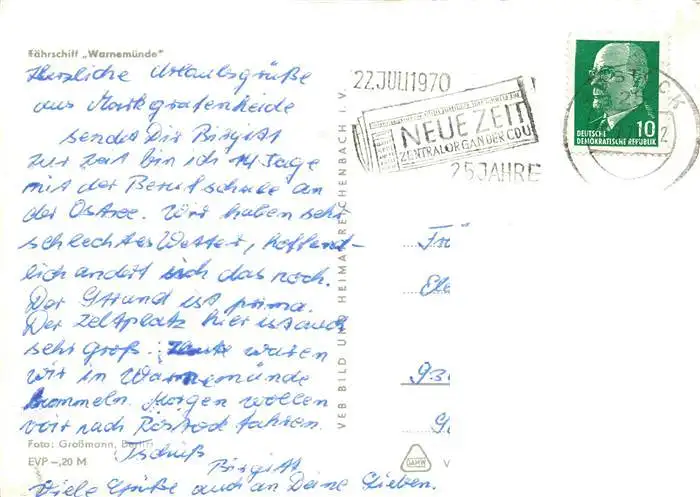 Fährschiff „Warnemünde"
Herzliche Urlaubsgrüße
aus Markgrafenheide
sendet Dir Birgitt
Zur Zeit bin ich 14 Tage
mit der Berufsschule an
der Ostsee. Wir haben sehr
schlechtes Wetter, hoffend-
lich ändert sich das noch.
Der Strand ist prima.
Der Zeltplatz hier ist auch
sehr groß. Heute waren
wir in Warnemünde
bummeln. Morgen wollen
wir nach Rostock fahren.
Tschüß
Birgitt
Viele Grüße auch an Deine Lieben.
Foto: Großmann, Berlin
EVP –,20 M
VEB BILD UND HEIMAT REICHENBACH I. V.
22. JULI 1970
NEUE ZEIT
ZENTRALORGAN DER CDU
25 JAHRE
ROSTOCK
DEUTSCHE
DEMOKRATISCHE REPUBLIK
10
V